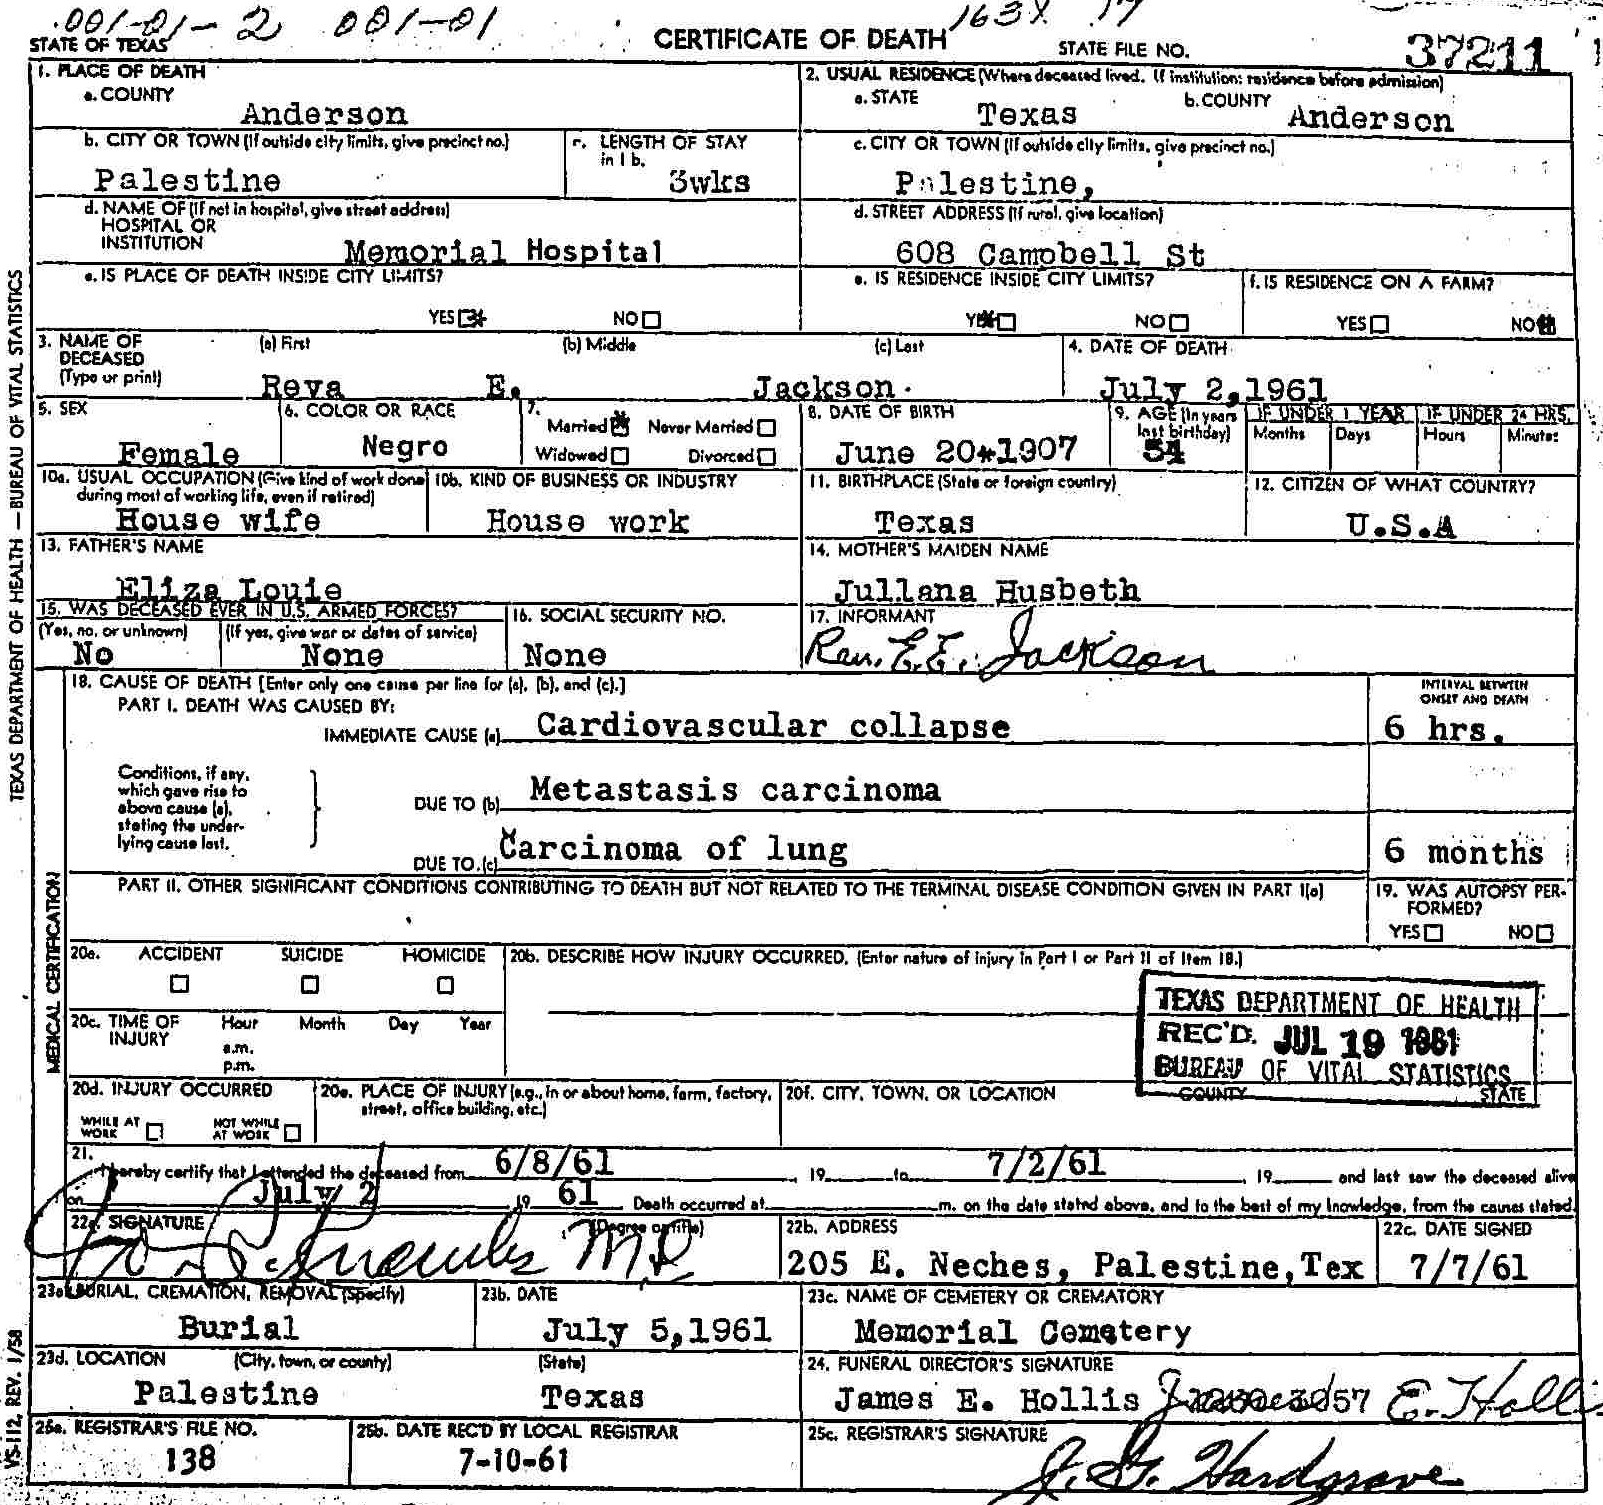 001-01-2 001-01
163X 17
STATE OF TEXAS
CERTIFICATE OF DEATH
STATE FILE NO. 37211
1. PLACE OF DEATH
a. COUNTY
Anderson
2. USUAL RESIDENCE (Where deceased lived. If institution: residence before admission)
a. STATE
Texas
b. COUNTY
Anderson
b. CITY OR TOWN (If outside city limits, give precinct no.)
Palestine
c. LENGTH OF STAY
in 1 b.
3wks
c. CITY OR TOWN (If outside city limits, give precinct no.)
Palestine,
d. NAME OF (If not in hospital, give street address)
HOSPITAL OR
INSTITUTION
Memorial Hospital
d. STREET ADDRESS (If rural, give location)
608 Campbell St
e. IS PLACE OF DEATH INSIDE CITY LIMITS?
YES NO
e. IS RESIDENCE INSIDE CITY LIMITS?
YES NO
f. IS RESIDENCE ON A FARM?
YES NO
3. NAME OF
DECEASED
(Type or print)
(a) First
(b) Middle
(c) Last
Reva E. Jackson
4. DATE OF DEATH
July 2,1961
5. SEX
Female
6. COLOR OR RACE
Negro
7.
Married Never Married
Widowed Divorced
8. DATE OF BIRTH
June 20*1907
9. AGE (In years
last birthday)
54
IF UNDER 1 YEAR
Months Days
IF UNDER 24 HRS.
Hours Minutes
10a. USUAL OCCUPATION (Give kind of work done
during most of working life, even if retired)
House wife
10b. KIND OF BUSINESS OR INDUSTRY
House work
11. BIRTHPLACE (State or foreign country)
Texas
12. CITIZEN OF WHAT COUNTRY?
U.S.A
13. FATHER'S NAME
Eliza Louie
14. MOTHER'S MAIDEN NAME
Jullana Husbeth
15. WAS DECEASED EVER IN U.S. ARMED FORCES?
(Yes, no, or unknown)
No
(If yes, give war or dates of service)
None
16. SOCIAL SECURITY NO.
None
17. INFORMANT
Rev. E.E. Jackson
18. CAUSE OF DEATH [Enter only one cause per line for (a), (b), and (c).]
PART I. DEATH WAS CAUSED BY:
IMMEDIATE CAUSE (a) Cardiovascular collapse
INTERVAL BETWEEN
ONSET AND DEATH
6 hrs.
Conditions, if any,
which gave rise to
above cause (a),
stating the under-
lying cause last.
DUE TO (b) Metastasis carcinoma
DUE TO (c) Carcinoma of lung
6 months
PART II. OTHER SIGNIFICANT CONDITIONS CONTRIBUTING TO DEATH BUT NOT RELATED TO THE TERMINAL DISEASE CONDITION GIVEN IN PART I(a)
19. WAS AUTOPSY PER-
FORMED?
YES NO
20a. ACCIDENT SUICIDE HOMICIDE
20b. DESCRIBE HOW INJURY OCCURRED. (Enter nature of injury in Part I or Part II of Item 18.)
20c. TIME OF
INJURY
Hour Month Day Year
a.m.
p.m.
TEXAS DEPARTMENT OF HEALTH
REC'D. JUL 19 1961
BUREAU OF VITAL STATISTICS
20d. INJURY OCCURRED
WHILE AT
WORK
NOT WHILE
AT WORK
20e. PLACE OF INJURY (e.g., in or about home, farm, factory,
street, office building, etc.)
20f. CITY, TOWN, OR LOCATION
COUNTY STATE
21.
I hereby certify that I attended the deceased from 6/8/61, 19 to 7/2/61, 19 and last saw the deceased alive
on July 2 19 61 Death occurred at m. on the date stated above, and to the best of my knowledge, from the causes stated.
22a. SIGNATURE
(Degree or title)
M.D.
22b. ADDRESS
205 E. Neches, Palestine,Tex
22c. DATE SIGNED
7/7/61
23a. BURIAL, CREMATION, REMOVAL (Specify)
Burial
23b. DATE
July 5,1961
23c. NAME OF CEMETERY OR CREMATORY
Memorial Cemetery
23d. LOCATION (City, town, or county) (State)
Palestine Texas
24. FUNERAL DIRECTOR'S SIGNATURE
James E. Hollis James E. Hollis
25a. REGISTRAR'S FILE NO.
138
25b. DATE REC'D BY LOCAL REGISTRAR
7-10-61
25c. REGISTRAR'S SIGNATURE
J. G. Hardgrave
TEXAS DEPARTMENT OF HEALTH — BUREAU OF VITAL STATISTICS
MEDICAL CERTIFICATION
VS-112, REV. 1/58